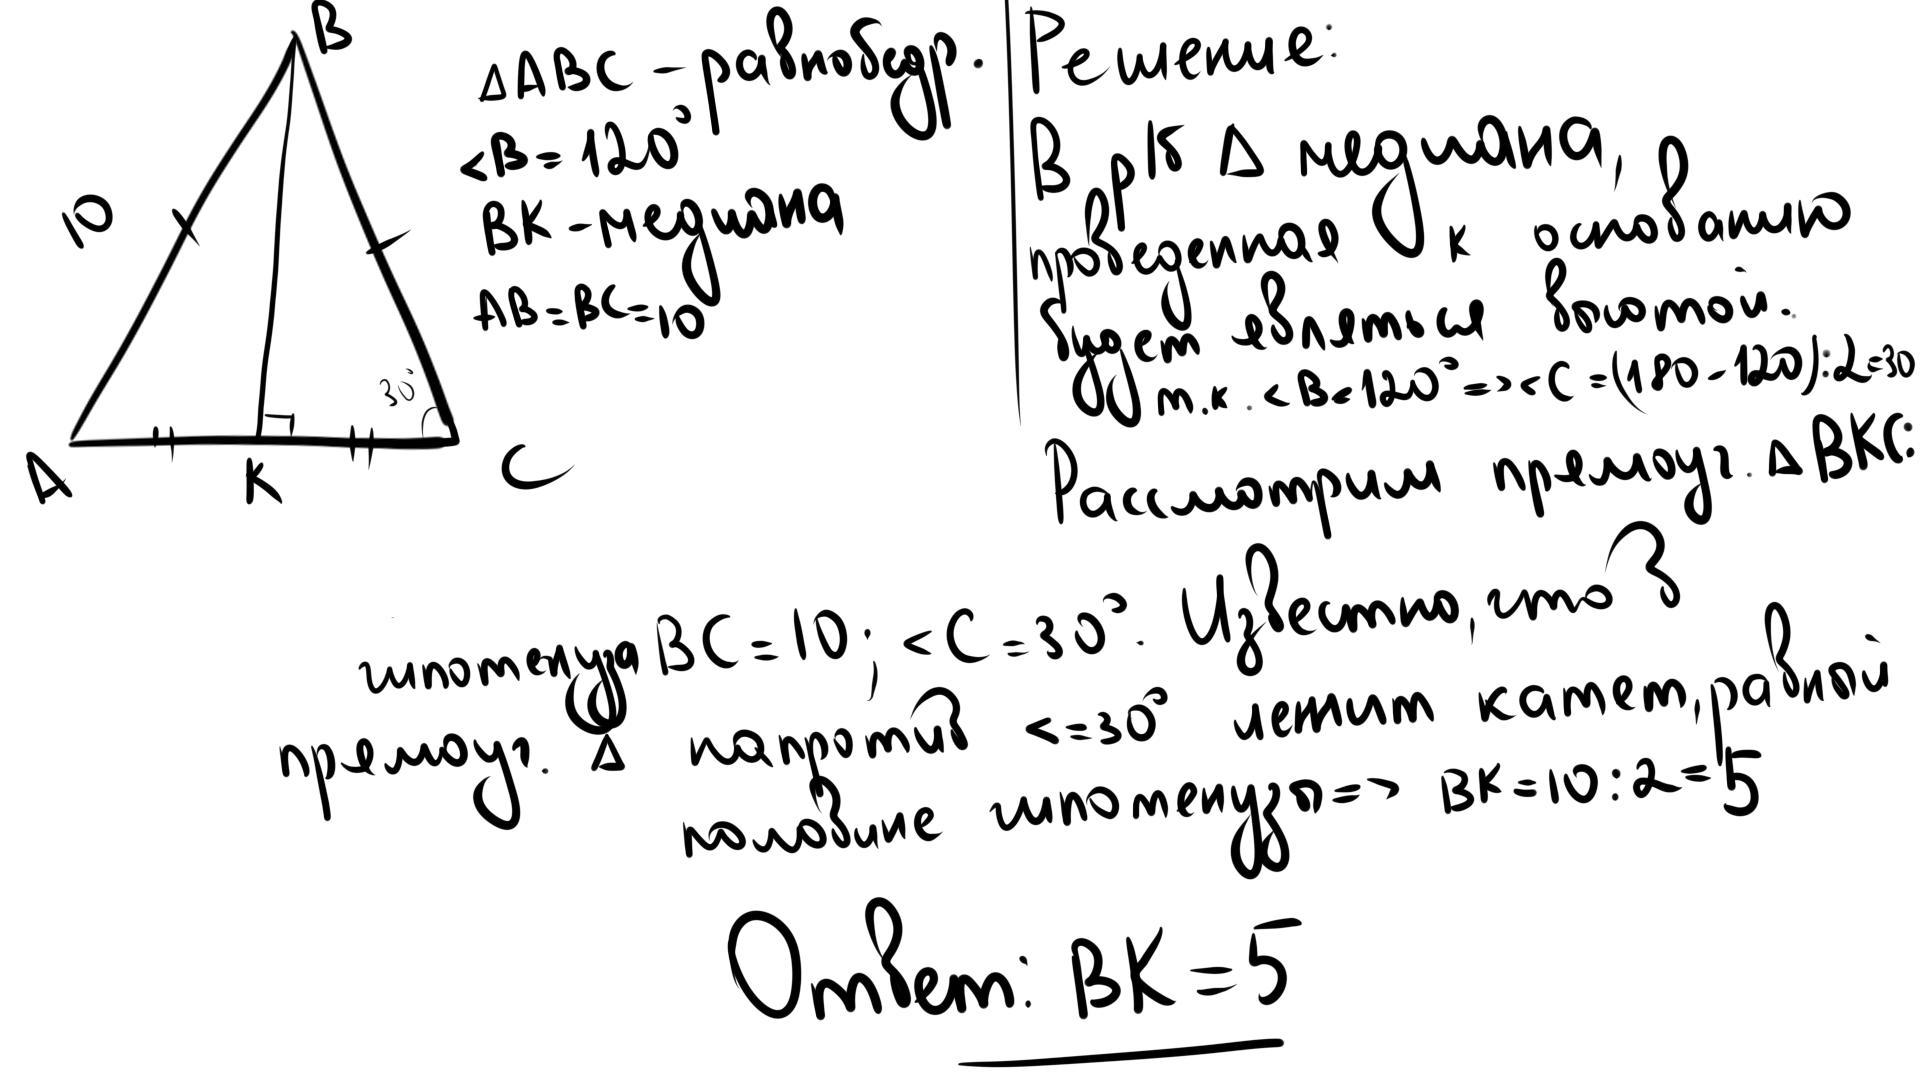 B
10
30°
A
K
C
△ABC - равнобедр.
<B = 120°
BK - медиана
AB = BC = 10
Решение:
В р/б △ медиана,
проведенная к основанию
будет являться высотой.
т.к. <B = 120° => <C = (180 - 120) : 2 = 30
Рассмотрим прямоуг. △BKC:
гипотенуза BC = 10; <C = 30°. Известно, что в
прямоуг. △ напротив < = 30° лежит катет, равный
половине гипотенузы => BK = 10 : 2 = 5
Ответ: BK = 5